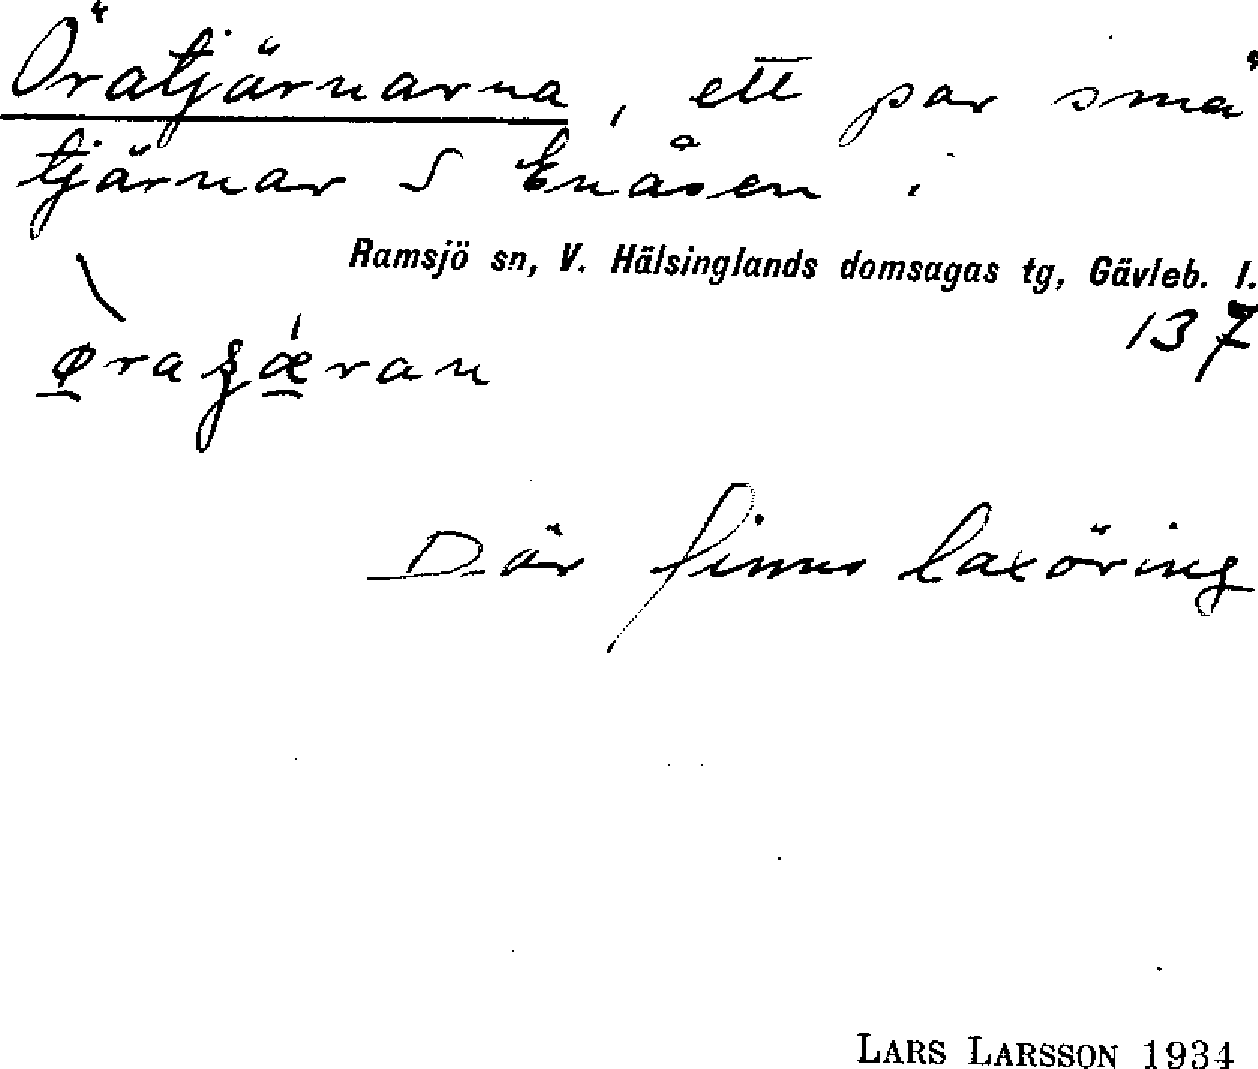 Öratjärnarna, ett par små
tjärnar S Enåsen.
Ramsjö sn, V. Hälsinglands domsagas tg, Gävleb. l.
137
Där finns laxöring
LARS LARSSON 1934